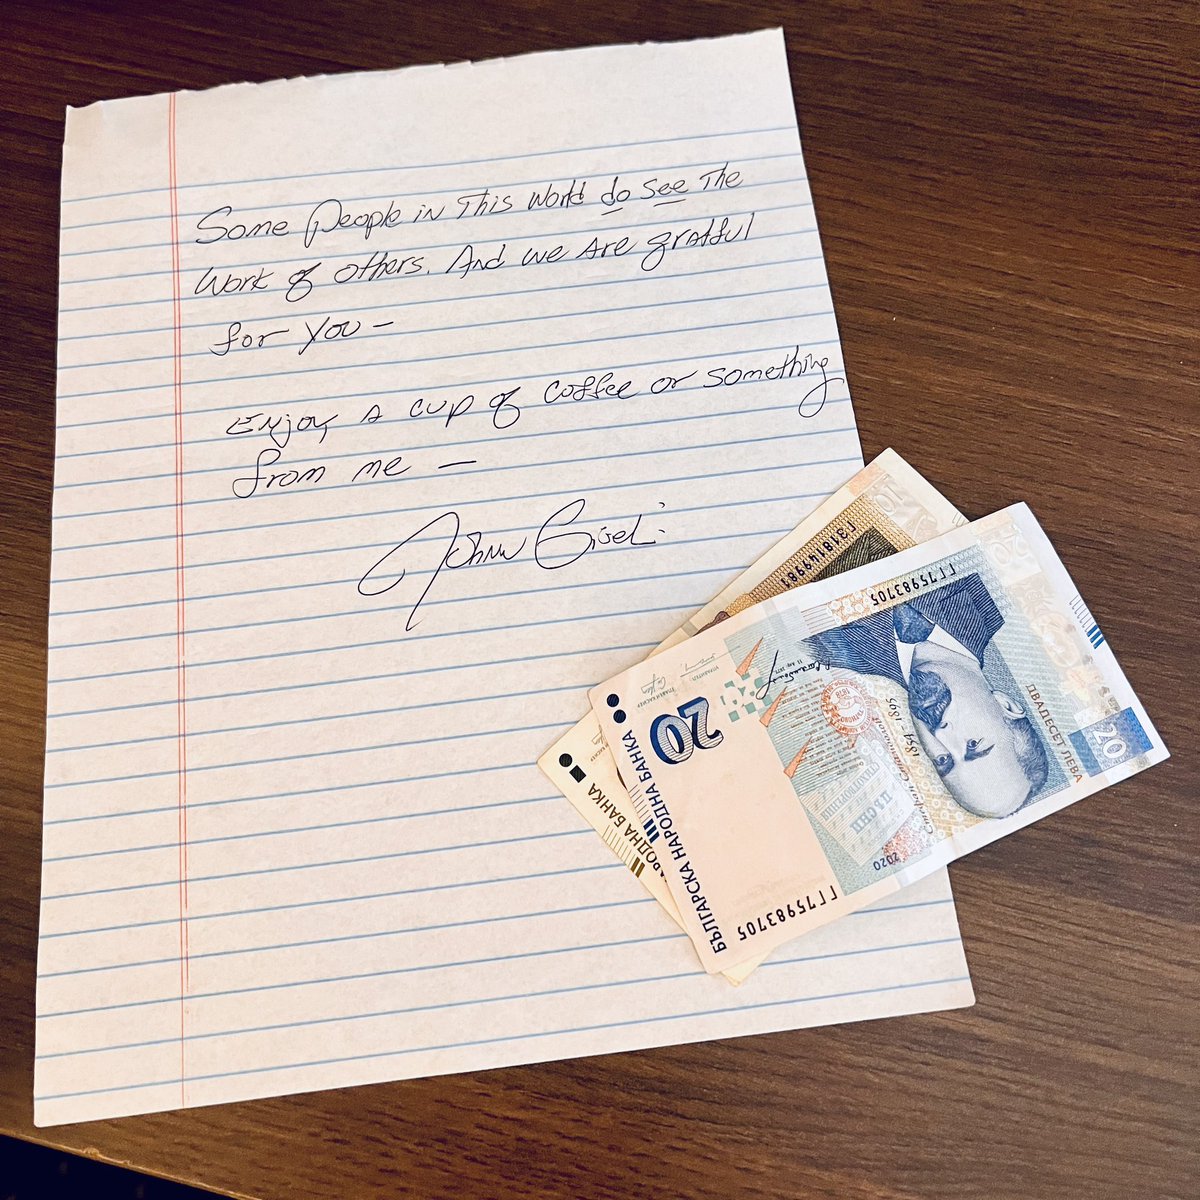 Some people in This World do see The
work of others. And we are gratful
for you –
Enjoy a cup of coffee or something
from me –
John
БЪЛГАРСКА НАРОДНА БАНКА
20
ГГ75983705
ГГ75983705
2020
Стефан Стамболов
1854 1895
ДВАДЕСЕТ ЛЕВА
20
20
НАРОДНА БАНКА
10